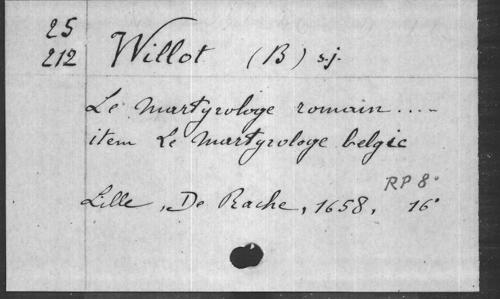 25
212 Willot (B) s.j.
Le Martyrologe romain....
item Le Martyrologe belgic
RP 8°
Lille, De Rache, 1658, 16°